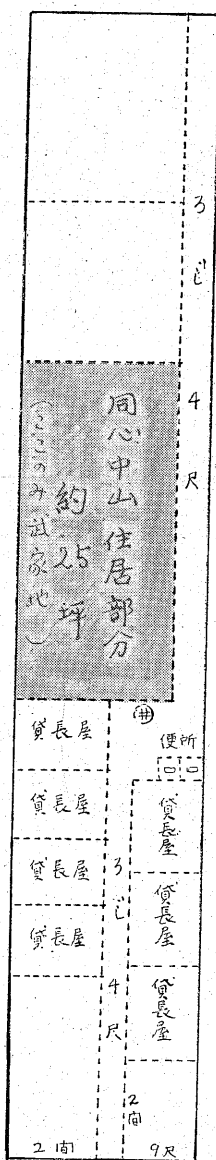 ろじ 4尺
同心中山 住居部分
約25坪
(ここのみ武家地)
井
便所
貸長屋
貸長屋
貸長屋
貸長屋
貸長屋
貸長屋
貸長屋
ろじ 4尺
2間
2間
9尺